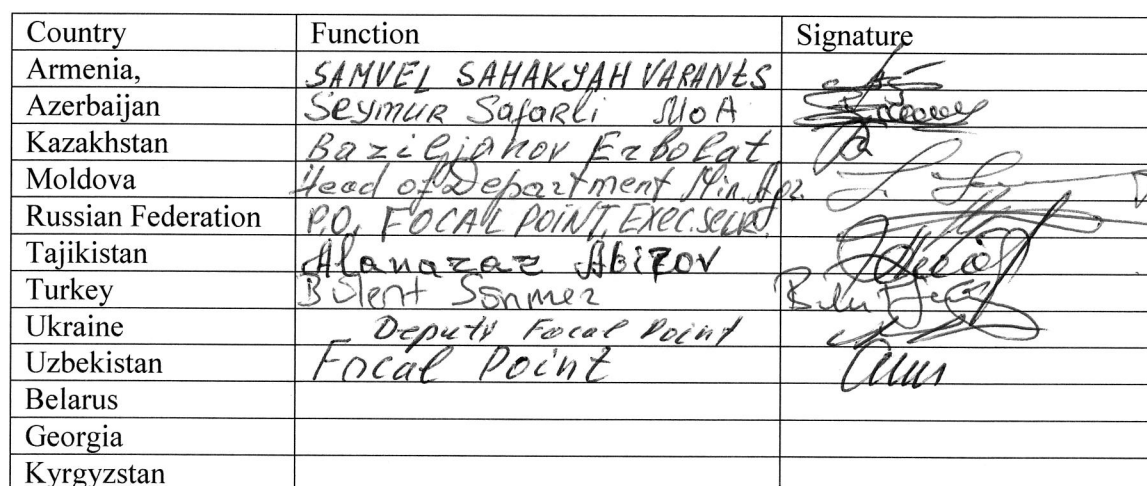 Country Function Signature
Armenia, SAMVEL SAHAKYAH VARANES
Azerbaijan Seymur Safarli MoA
Kazakhstan Baziljanov Erbolat
Moldova Head of Department Min. Agr.
Russian Federation P.O. FOCAL POINT, EXEC. SECRET.
Tajikistan Alanazar Abizov
Turkey Bülent Sönmez
Ukraine Deputy Focal Point
Uzbekistan Focal Point
Belarus
Georgia
Kyrgyzstan